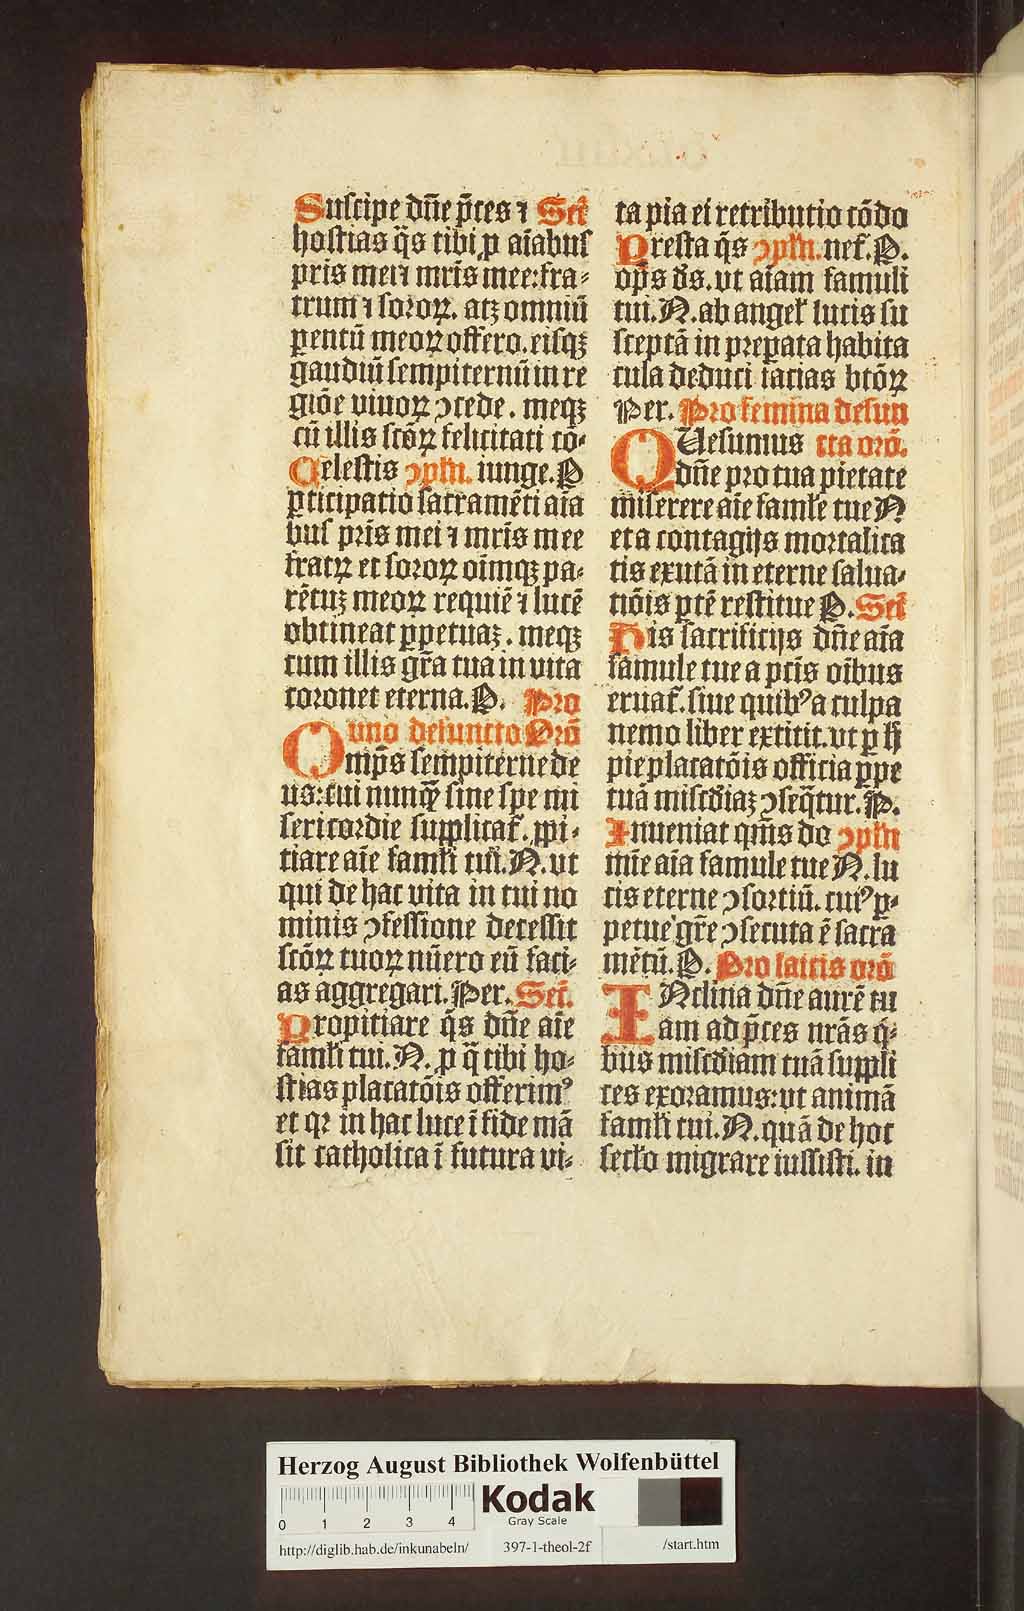 Suscipe dñe p̄ces ⁊ Sec̄
hostias q̄s tibi ꝓ aīabus
pris mei ⁊ mrīs mee: fra-
trum ⁊ soroꝝ. atqꝫ omniū
ꝑentū meoꝝ offero. eisqꝫ
gaudiū sempiternū in re
giōe viuoꝝ ↄcede. meqꝫ
cū illis scōꝝ felicitati cō-
Celestis ↄpłn. iunge. P
ꝑticipatio sacramēti aīa
bus prīs mei ⁊ mrīs mee
fratꝝ et soroꝝ oīmqꝫ pa-
rētuꝫ meoꝝ requiē ⁊ lucē
obtineat ꝑpetuaꝫ. meqꝫ
cum illis gr̄a tua in vita
coronet eterna. P. Pro
uno defuncto Orō
Omp̄s sempiterne de
us: cui nunqꝫ sine spe mi
sericordie supplicat̄. ꝓpi-
tiare aīe famłi tui. N. vt
qui de hac vita in tui no
minis ↄfessione decessit
scōꝝ tuoꝝ nūero eū faci-
as aggregari. Per. Sec̄.
Propitiare q̄s dn̄e aīe
famłi tui. N. ꝓ q̄ tibi ho-
stias placatōis offerimꝰ
et qꝛ in hac luce ī fide mā
sit catholica ī futura vi-
ta pia ei retributio cōdo
Presta q̄s ↄpłn. net̄. P.
op̄s ds̄. vt aīam famuli
tui. N. ab angeł lucis su
sceptā in preꝑata habita
cula deduci facias btōꝝ
Per. Pro femina defun
QUesumus cta orō.
dn̄e pro tua pietate
miserere aīe famłe tue N
eta contagijs mortalita
tis exutā in eterne salua-
tiōis ꝑtē restitue P. Sec̄
His sacrificijs dn̄e aīa
famule tue a pctīs oībus
eruat̄. siue quibꝰ a culpa
nemo liber extitit. vt ꝑ h̄
pie placatōis officia ꝑpe
tuā miscd̄iaꝫ ↄseq̄tur. P.
Inueniat qm̄s do ↄpłn
mīe aīa famule tue N. lu
cis eterne ↄsortiū. cuiꝰ ꝑ-
petue gr̄e ↄsecuta ē sacra
mētū. P. Pro laicis orō
INclina dn̄e aurē tu
am ad p̄ces nrās q̄-
bus miscd̄iam tuā suppli
ces exoramus: vt animā
famłi tui. N. quā de hoc
secło migrare iussisti. in
Herzog August Bibliothek Wolfenbüttel
0 1 2 3 4
Kodak
Gray Scale
http://diglib.hab.de/inkunabeln/ 397-1-theol-2f /start.htm